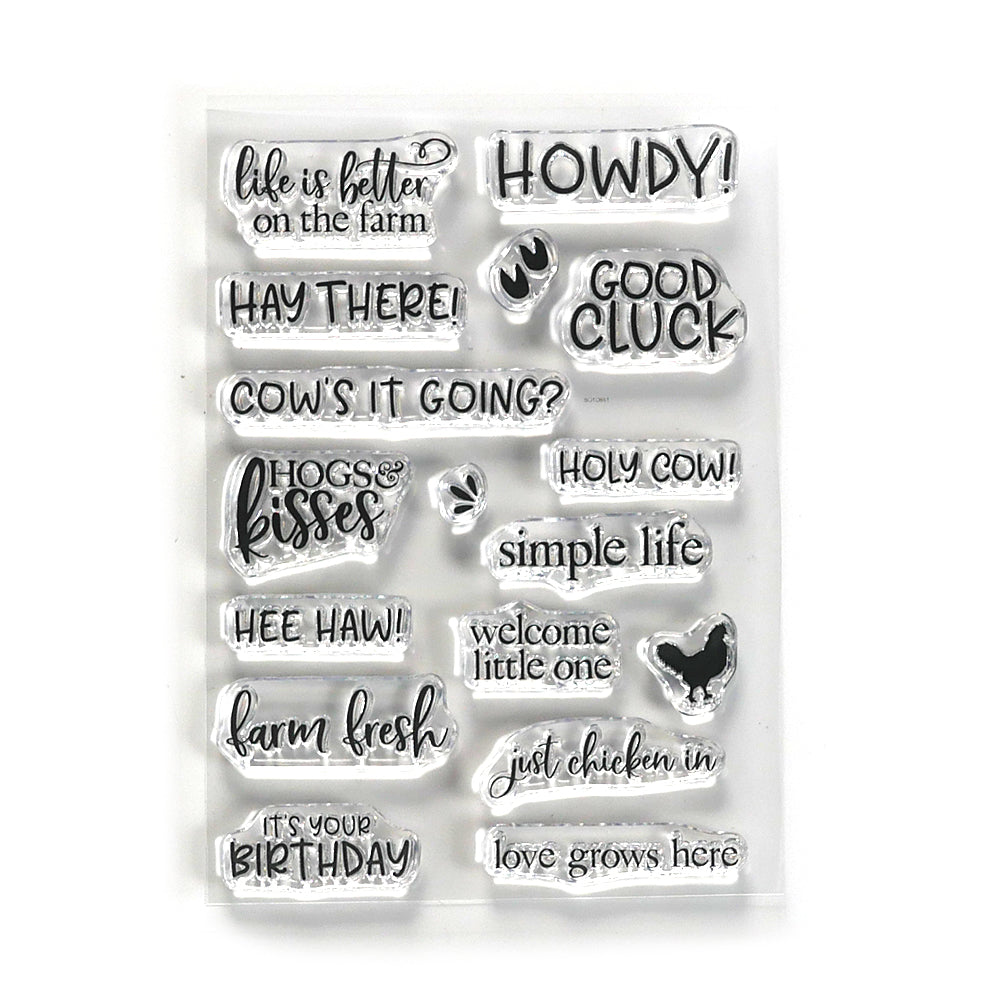 life is better
on the farm
HOWDY!
HAY THERE!
GOOD
CLUCK
COW'S IT GOING?
HOGS &
kisses
HOLY COW!
simple life
HEE HAW!
welcome
little one
farm fresh
just chicken in
IT'S YOUR
BIRTHDAY
love grows here